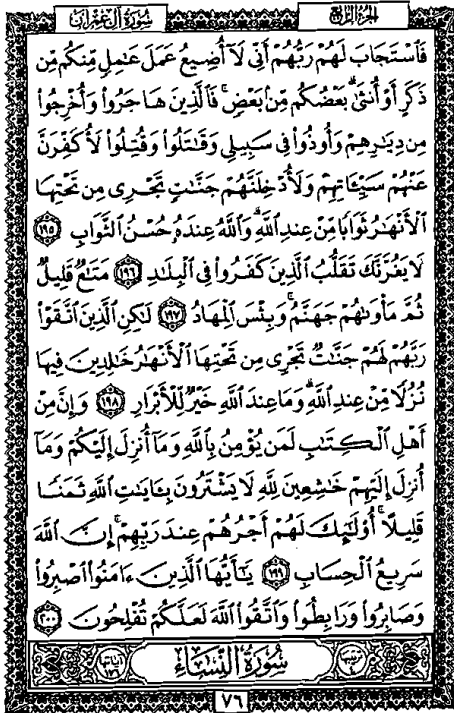 الجزء الرابع
سورة آل عمران
فَٱسْتَجَابَ لَهُمْ رَبُّهُمْ أَنِّي لَآ أُضِيعُ عَمَلَ عَٰمِلٍ مِّنكُم مِّن
ذَكَرٍ أَوْ أُنثَىٰۖ بَعْضُكُم مِّنۢ بَعْضٍۖ فَٱلَّذِينَ هَاجَرُوا۟ وَأُخْرِجُوا۟
مِن دِيَٰرِهِمْ وَأُوذُوا۟ فِي سَبِيلِي وَقَٰتَلُوا۟ وَقُتِلُوا۟ لَأُكَفِّرَنَّ
عَنْهُمْ سَيِّـَٔاتِهِمْ وَلَأُدْخِلَنَّهُمْ جَنَّٰتٍ تَجْرِي مِن تَحْتِهَا
ٱلْأَنْهَٰرُ ثَوَابًا مِّنْ عِندِ ٱللَّهِۗ وَٱللَّهُ عِندَهُۥ حُسْنُ ٱلثَّوَابِ ١٩٥
لَا يَغُرَّنَّكَ تَقَلُّبُ ٱلَّذِينَ كَفَرُوا۟ فِي ٱلْبِلَٰدِ ١٩٦ مَتَٰعٌ قَلِيلٌ
ثُمَّ مَأْوَىٰهُمْ جَهَنَّمُۚ وَبِئْسَ ٱلْمِهَادُ ١٩٧ لَٰكِنِ ٱلَّذِينَ ٱتَّقَوْا۟
رَبَّهُمْ لَهُمْ جَنَّٰتٌ تَجْرِي مِن تَحْتِهَا ٱلْأَنْهَٰرُ خَٰلِدِينَ فِيهَا
نُزُلًا مِّنْ عِندِ ٱللَّهِۗ وَمَا عِندَ ٱللَّهِ خَيْرٌ لِّلْأَبْرَارِ ١٩٨ وَإِنَّ مِنْ
أَهْلِ ٱلْكِتَٰبِ لَمَن يُؤْمِنُ بِٱللَّهِ وَمَآ أُنزِلَ إِلَيْكُمْ وَمَآ
أُنزِلَ إِلَيْهِمْ خَٰشِعِينَ لِلَّهِ لَا يَشْتَرُونَ بِـَٔايَٰتِ ٱللَّهِ ثَمَنًا
قَلِيلًاۗ أُو۟لَٰٓئِكَ لَهُمْ أَجْرُهُمْ عِندَ رَبِّهِمْۗ إِنَّ ٱللَّهَ
سَرِيعُ ٱلْحِسَابِ ١٩٩ يَٰٓأَيُّهَا ٱلَّذِينَ ءَامَنُوا۟ ٱصْبِرُوا۟
وَصَابِرُوا۟ وَرَابِطُوا۟ وَٱتَّقُوا۟ ٱللَّهَ لَعَلَّكُمْ تُفْلِحُونَ ٢٠٠
سُورَةُ النِّسَاءِ
٧٦